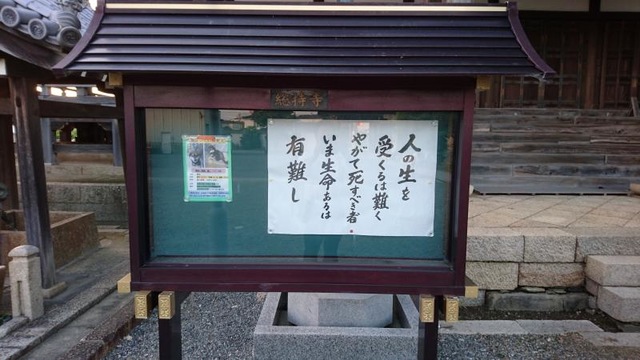 総持寺
人の生を
受くるは難く
やがて死すべき者
いま生命あるは
有難し